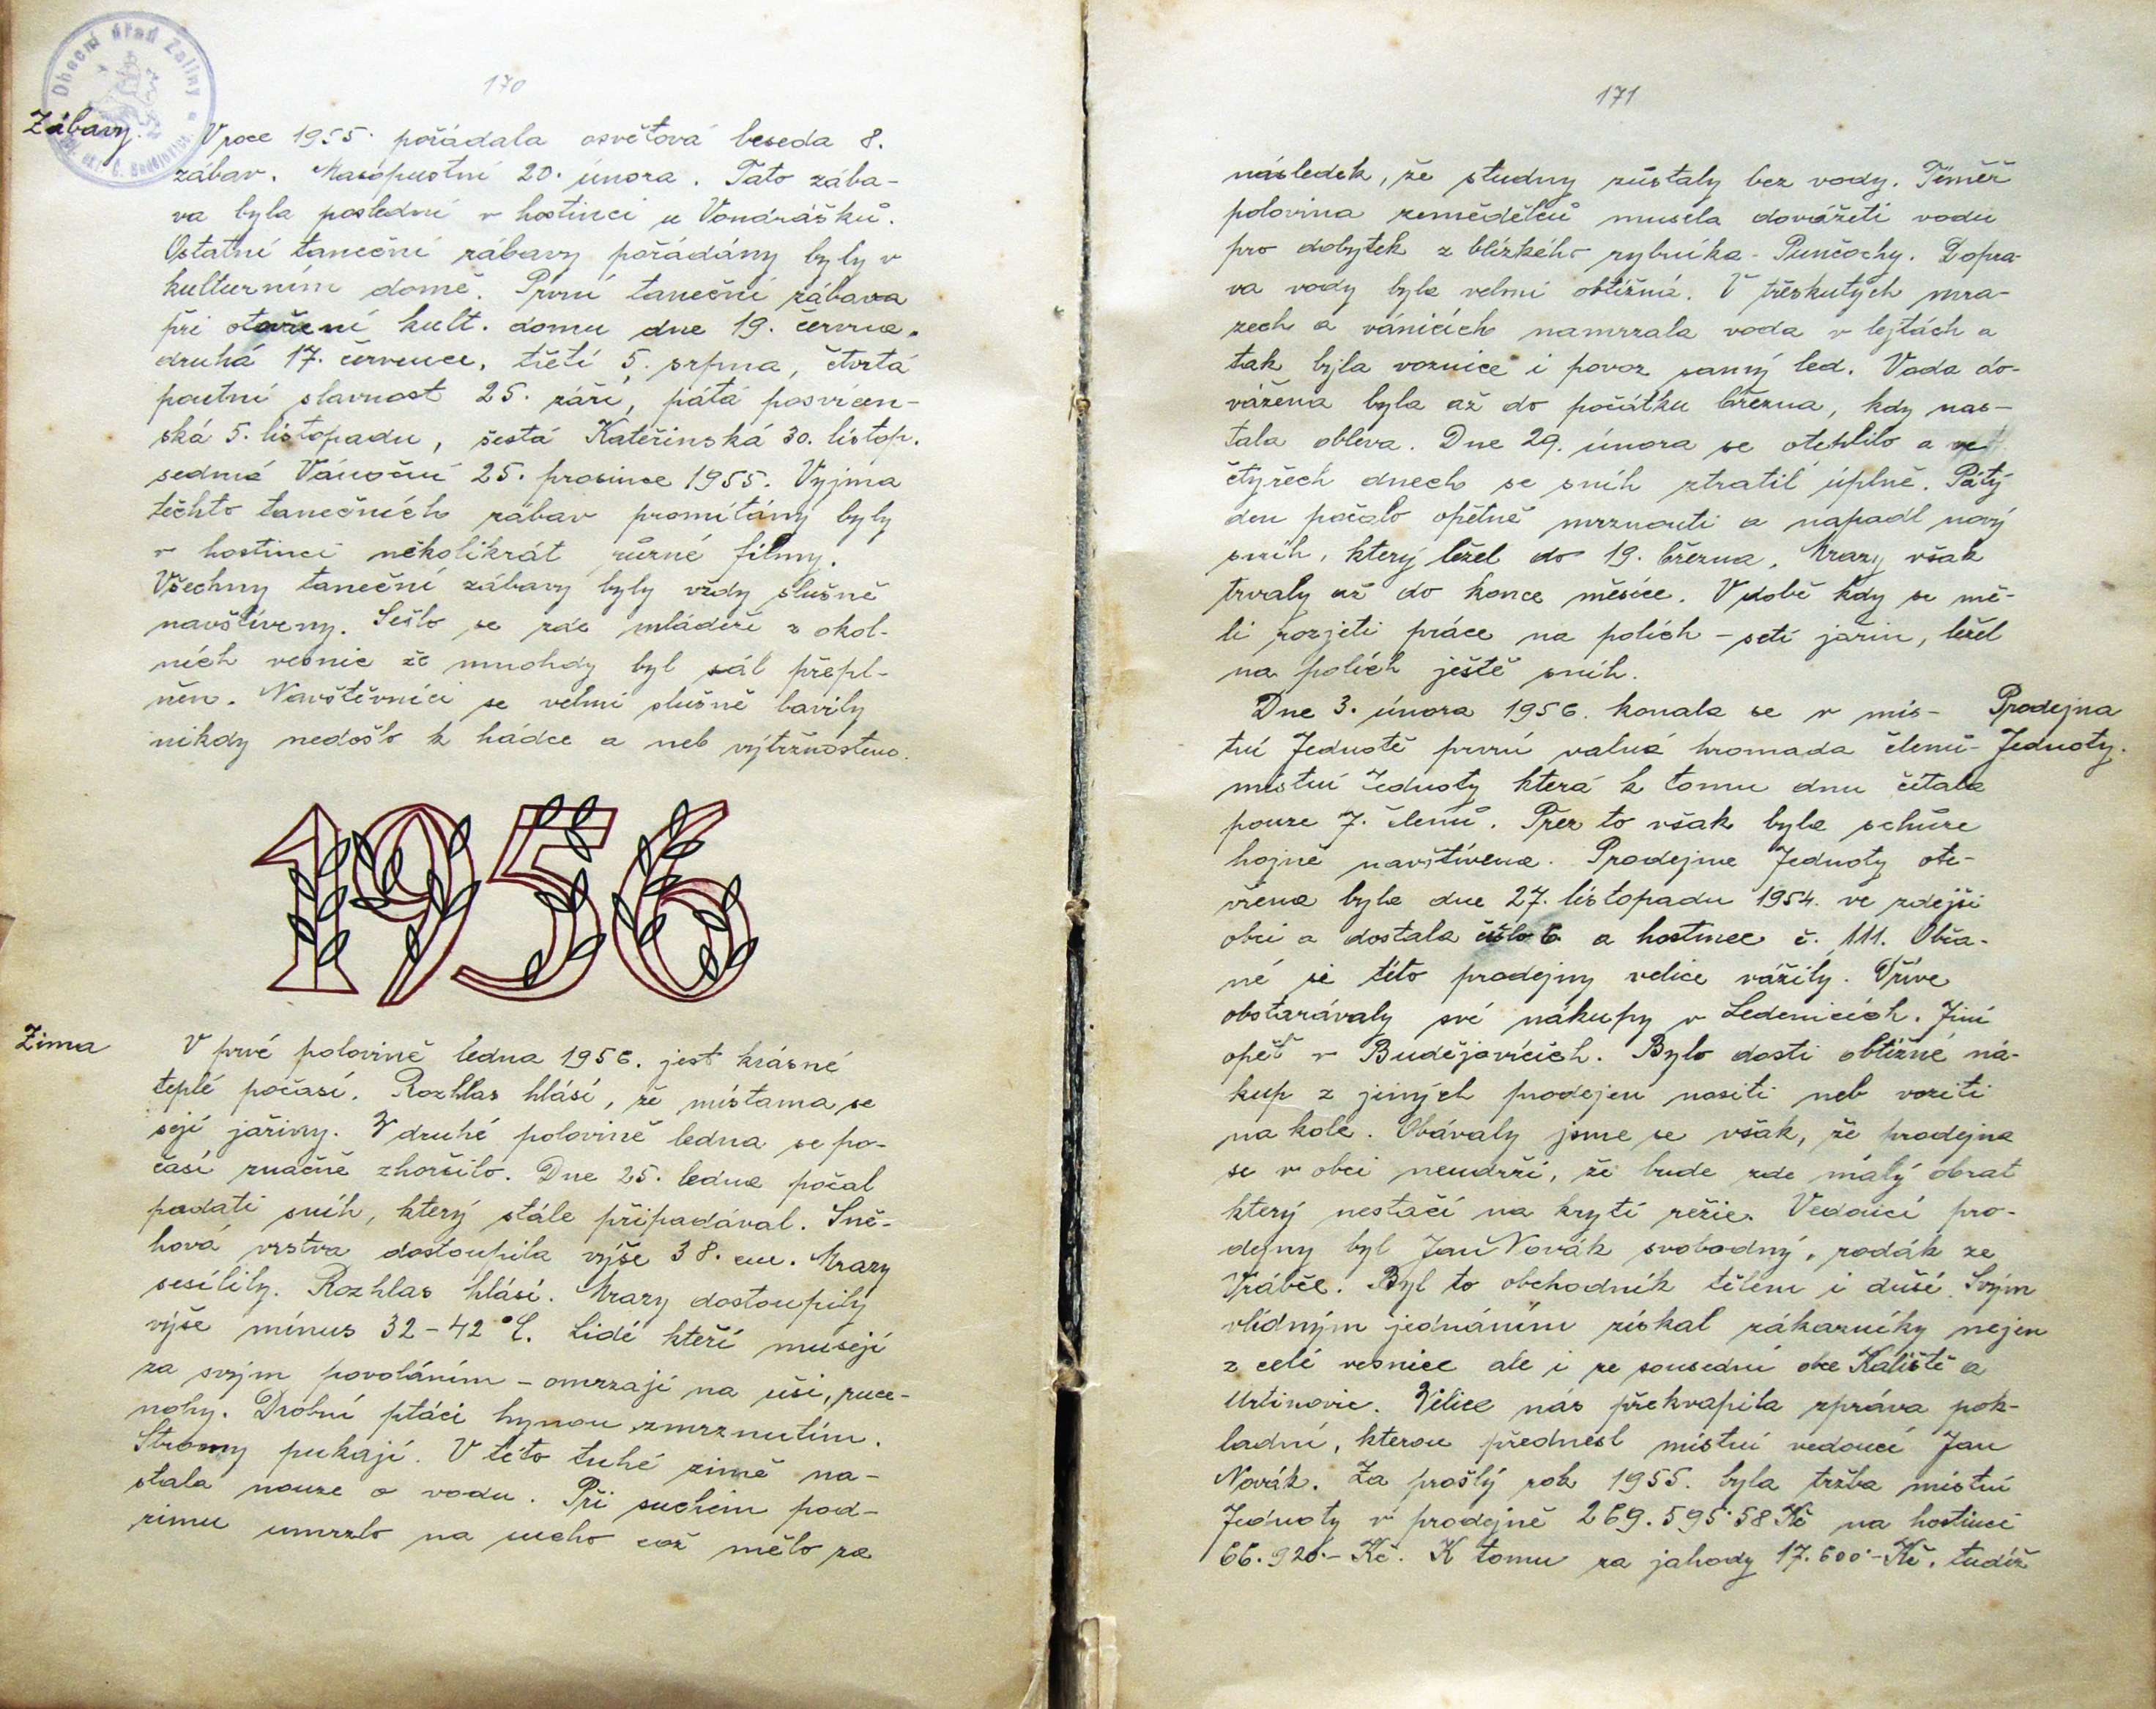 Obecní úřad Zaliny
okr. Č. Budějovice
170
Zábavy.
V roce 1955. pořádala osvětová beseda 8.
zábav. Masopustní 20. února. Tato zába-
va byla poslední v hostinci u Vondrášků.
Ostatní taneční zábavy pořádány byly v
kulturním domě. První taneční zábava
při otevření kult. domu dne 19. června.
druhá 17. července, třetí 5. srpna, čtvrtá
poutní slavnost 25. září, pátá posvícen-
ská 5. listopadu, šestá Kateřinská 30. listop.
sedmá Vánoční 25. prosince 1955. Vyjma
těchto tanečních zábav promítány byly
v hostinci několikrát různé filmy.
Všechny taneční zábavy byly vždy slušně
navštíveny. Sešlo se zde mládeže z okol-
ních vesnic že mnohdy byl sál přepl-
něn. Navštěvníci se velmi slušně bavily
nikdy nedošlo k hádce a neb výtržnostem.
1956
Zima
V prvé polovině ledna 1956. jest krásné
teplé počasí. Rozhlas hlásí, že místama se
sejí jařiny. V druhé polovině ledna se po-
časí značně zhoršilo. Dne 25. ledna počal
padati sníh, který stále připadával. Sně-
hová vrstva dostoupila výše 38. cm. Mrazy
sesílily. Rozhlas hlásí. Mrazy dostoupily
výše mínus 32-42°C. Lidé kteří musejí
za svým povoláním - omrzají na uši, ruce-
nohy. Drobní ptáci hynou zmrznutím.
Stromy pukají. V této tuhé zimě na-
stala nouze o vodu. Při suchém pod-
zimu umrzlo na sucho což mělo za
171
následek, že studny zůstaly bez vody. Téměř
polovina zemědělců musela dovážeti vodu
pro dobytek z blízkého rybníka - Punčochy. Dopra-
va vody byla velmi obtížná. V třeskutých mra-
zech a vánicích namrzala voda v lejtách a
tak byla voznice i povoz samý led. Voda do-
vážena byla až do počátku března, kdy nas-
tala obleva. Dne 29. února se oteplilo a ve
čtyřech dnech se sníh ztratil úplně. Pátý
den počalo opětně mrznouti a napadl nový
sníh, který ležel do 19. března. Mrazy však
trvaly až do konce měsíce. V době kdy se mě-
li rozjeti práce na polích - setí jařin, ležel
na polích ještě sníh.
Prodejna
Jednoty.
Dne 3. února 1956. konala se v mís-
tní Jednotě první valná hromada členů-
místní Jednoty která k tomu dnu čítala
pouze 7. členů. Přez to však byla schůze
hojně navštívena. Prodejna Jednoty ote-
vřena byla dne 27. listopadu 1954. ve zdejší
obci a dostala číslo 6 a hostinec č. 111. Obča-
né si této prodejny velice vážily. Dříve
obstarávaly své nákupy v Ledenicích. Jiní
opět v Budějovicích. Bylo dosti obtížné ná-
kup z jiných prodejen nositi neb voziti
na kole. Obávaly jsme se však, že prodejna
se v obci neudrží, že bude zde malý obrat
který nestačí na krytí režie. Vedoucí pro-
dejny byl Jan Novák svobodný, rodák ze
Vrábče. Byl to obchodník tělem i duší. Svým
vlídným jednáním získal zákazníky nejen
z celé vesnice ale i ze sousední obce Kaliště a
Urtinovic. Velice nás překvapila zpráva pok-
ladní, kterou přednesl místní vedoucí Jan
Novák. Za prošlý rok 1955. byla tržba místní
Jednoty v prodejně 269.595.58 Kč na hostinci
66.920.- Kč. K tomu za jahody 17.600.- Kč. tudíž